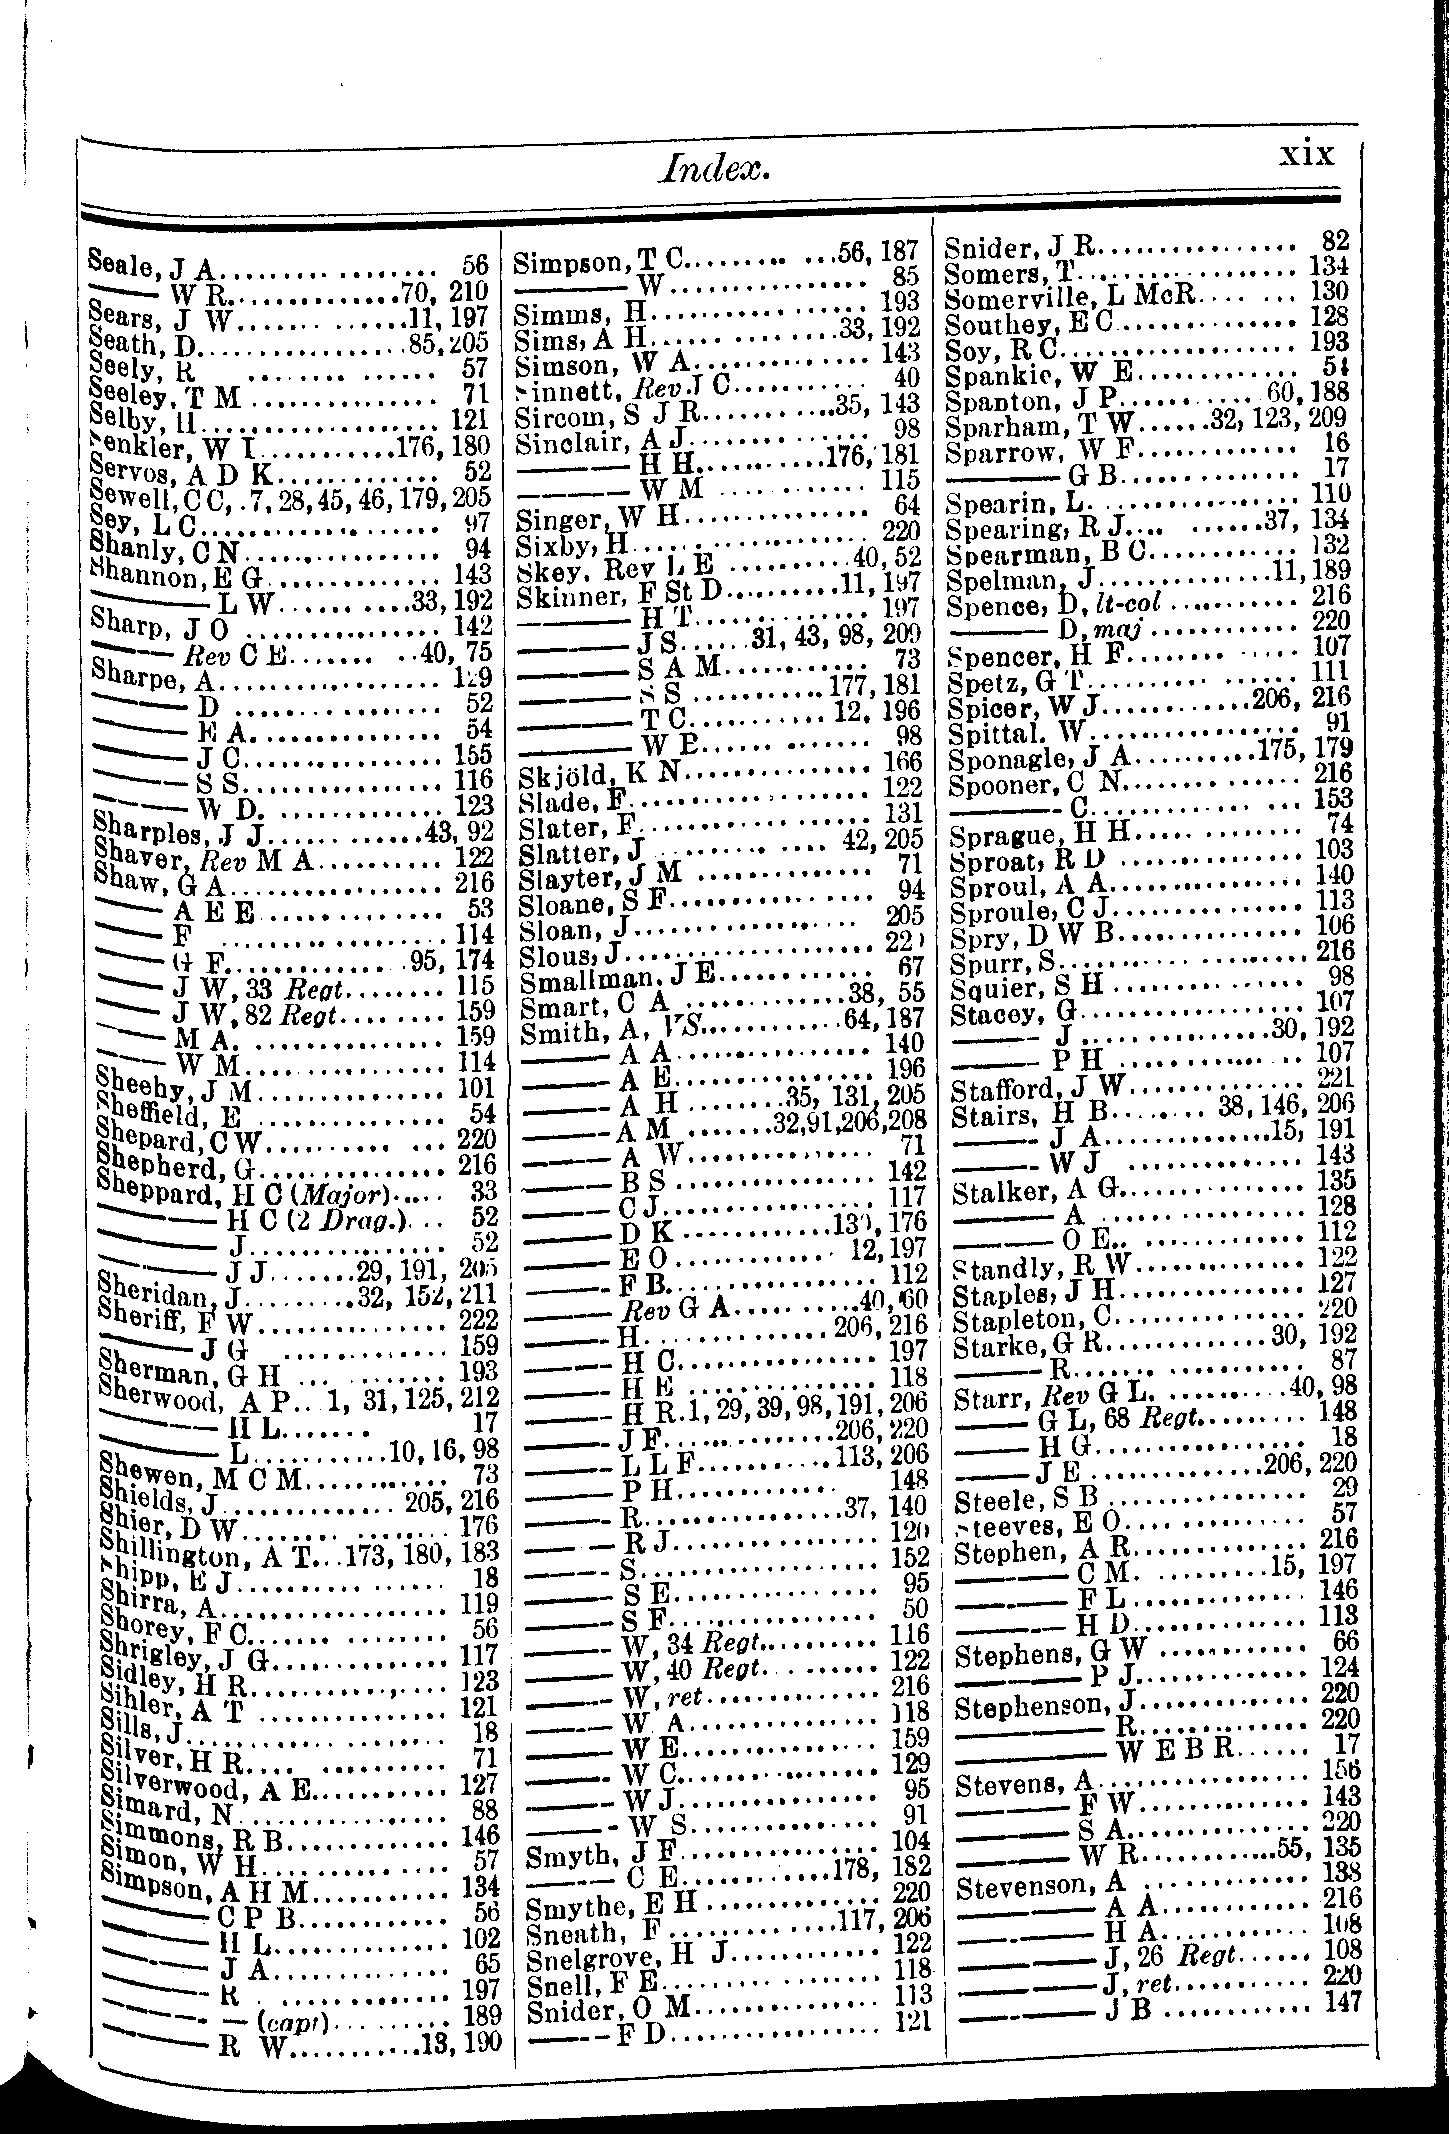 Index.
xix
Seale, J A................. 56
—— W R..............70, 210
Sears, J W..............11, 197
Seath, D................85, 205
Seely, R .............. 57
Seeley, T M............... 71
Selby, H................... 121
Senkler, W I...........176, 180
Servos, A D K............. 52
Sewell, C C, .7, 28, 45, 46, 179, 205
Sey, L C................... 97
Shanly, C N................ 94
Shannon, E G.............. 143
—— L W..........33, 192
Sharp, J O ................ 142
—— Rev C E....... ..40, 75
Sharpe, A.................. 129
—— D ................. 52
—— E A................ 54
—— J C................ 155
—— S S................ 116
—— W D. ............. 123
Sharples, J J............43, 92
Shaver, Rev M A.......... 122
Shaw, G A................. 216
—— A E E............... 53
—— F ..................114
—— G F.............. .95, 174
—— J W, 33 Regt........ 115
—— J W, 82 Regt......... 159
—— M A. ............... 159
—— W M................ 114
Sheehy, J M............... 101
Sheffield, E ............... 54
Shepard, C W.......... ... 220
Shepherd, G............... 216
Sheppard, H C (Major)..... 33
—— H C (2 Drag.)... 52
—— J................ 52
—— J J.......29, 191, 205
Sheridan, J.........32, 152, 211
Sheriff, F W............... 222
—— J G ............. 159
Sherman, G H ... ......... 193
Sherwood, A P.. 1, 31, 125, 212
—— H L....... 17
—— L...........10, 16, 98
Shewen, M C M............ 73
Shields, J.............. 205, 216
Shier, D W........ ........ 176
Shillington, A T...173, 180, 183
Shipp, E J................. 18
Shirra, A.................. 119
Shorey, F C....... ........ 56
Shrigley, J G.............. 117
Sidley, H R............... 123
Sihler, A T ............... 121
Sills, J.................... 18
Silver, H R.... .......... 71
Silverwood, A E........... 127
Simard, N................. 88
Simmons, R B............. 146
Simon, W H............... 57
Simpson, A H M........... 134
—— C P B............ 56
—— H L.............. 102
—— J A.............. 65
—— R . .............. 197
—— — (capt).......... 189
—— R W...........13, 190
Simpson, T C......... ...56, 187
—— W................ 85
Simms, H.................. 193
Sims, A H...... .........33, 192
Simson, W A.............. 143
Sinnett, Rev J C........... 40
Sircom, S J R...........35, 143
Sinclair, A J............... 98
—— H H..........176, 181
—— W M ........... 115
Singer, W H............... 64
Sixby, H................... 220
Skey, Rev L E ..........40, 52
Skinner, F St D..........11, 197
—— H T.............. 197
—— J S......31, 43, 98, 209
—— S A M............ 73
—— S S ...........177, 181
—— T C........... 12, 196
—— W B...... ....... 98
Skjöld, K N............... 166
Slade, F................... 122
Slater, F................... 131
Slatter, J ......... .... 42, 205
Slayter, J M .............. 71
Sloane, S F................ 94
Sloan, J................... 205
Slous, J.................... 220
Smallman, J E............. 67
Smart, C A ..............38, 55
Smith, A, VS............64, 187
—— A A................ 140
—— A E................ 196
—— A H ........35, 131, 205
—— A M .......32, 91, 206, 208
—— A W............... 71
—— B S ............... 142
—— C J................ 117
—— D K .............130, 176
—— E O.............. 12, 197
—— F B................ 112
—— Rev G A...........40, 60
—— H................ 206, 216
—— H C................ 197
—— H E ............... 118
—— H R.1, 29, 39, 98, 191, 206
—— J F...............206, 220
—— L L F...........113, 206
—— P H............. 148
—— R.................37, 140
—— R J................ 120
—— S.................. 152
—— S E................ 95
—— S F................ 50
—— W, 34 Regt.......... 116
—— W, 40 Regt. ....... 122
—— W, ret.............. 216
—— W A............... 118
—— W E............... 159
—— W C............... 129
—— W J............... 95
—— W S............... 91
Smyth, J F................ 104
—— C E.............178, 182
Smythe, E H.............. 220
Sneath, F ..............117, 206
Snelgrove, H J............ 122
Snell, F E................. 118
Snider, O M............... 113
—— F D................ 121
Snider, J R................ 82
Somers, T.................. 134
Somerville, L McR.... ... 130
Southey, E C............... 128
Soy, R C.................. 193
Spankie, W E............. 54
Spanton, J P............ 60, 188
Sparham, T W......32, 123, 209
Sparrow, W F............. 16
—— G B.............. 17
Spearin, L................. 110
Spearing, R J.... ......37, 134
Spearman, B C............ 132
Spelman, J..............11, 189
Spence, D, lt-col ........... 216
—— D, maj ............ 220
Spencer, H F........ ..... 107
Spetz, G T.......... ...... 111
Spicer, W J............206, 216
Spittal, W................. 91
Sponagle, J A..........175, 179
Spooner, C N.............. 216
—— C............. ... 153
Sprague, H H..... ........ 74
Sproat, R D .............. 103
Sproul, A A............... 140
Sproule, C J............... 113
Spry, D W B.............. 106
Spurr, S...................216
Squier, S H ............... 98
Stacey, G.................. 107
—— J ................30, 192
—— P H .............. 107
Stafford, J W.............. 221
Stairs, H B........ 38, 146, 206
—— J A..............15, 191
—— W J .............. 143
Stalker, A G............... 135
—— A ................ 128
—— O E.. ............ 112
Standly, R W.............. 122
Staples, J H............... 127
Stapleton, C............... 220
Starke, G R..............30, 192
—— R................. 87
Starr, Rev G L. ..........40, 98
—— G L, 68 Regt......... 148
—— H G................ 18
—— J E ..............206, 220
Steele, S B ................ 29
Steeves, E O............... 57
Stephen, A R.............. 216
—— C M. .........15, 197
—— F L.............. 146
—— H D............. 113
Stephens, G W ............ 66
—— P J............. 124
Stephenson, J.............. 220
—— R.............. 220
—— W E B R...... 17
Stevens, A................. 156
—— F W............. 143
—— S A............. 220
—— W R...........55, 135
Stevenson, A .............. 138
—— A A........... 216
—— H A........... 108
—— J, 26 Regt...... 108
—— J, ret........... 220
—— J B ............ 147